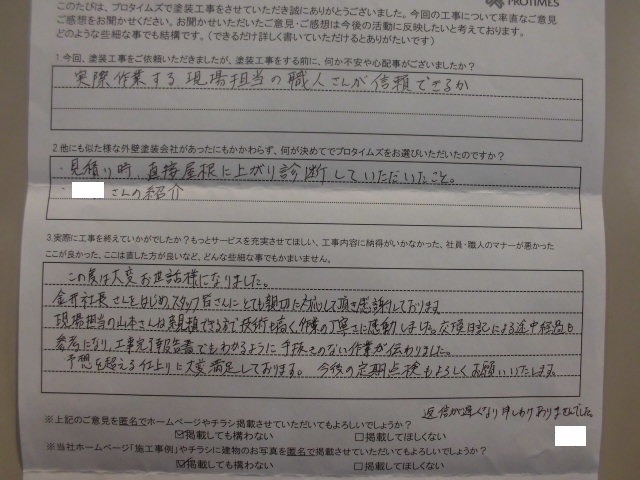 PROTIMES
このたびは、プロタイムズで塗装工事をさせていただき誠にありがとうございました。今回の工事について率直なご意見
ご感想をお聞かせください。お聞かせいただいたご意見・ご感想は今後の活動に反映したいと考えております。
どのような些細な事でも結構です。（できるだけ詳しく書いていただけるとありがたいです）
1.今回、塗装工事をご依頼いただきましたが、塗装工事をする前に、何か不安や心配事がございましたか？
実際作業する現場担当の職人さんが信頼できるか
2.他にも似た様な外壁塗装会社があったにもかかわらず、何が決めてでプロタイムズをお選びいただいたのですか？
・見積り時、直接屋根に上がり診断していただいたこと。
・ さんの紹介
3.実際に工事を終えていかがでしたか？もっとサービスを充実させてほしい、工事内容に納得がいかなかった、社員・職人のマナーが悪かった
ここが良かった、ここは直した方が良いなど、どんな些細な事でもかまいません。
この度は大変お世話様になりました。
金井社長さんをはじめ、スタッフ皆さんにとても親切に対応して頂き感謝しております
現場担当の山本さんは信頼できる方で技術も高く、作業の丁寧さに感動しました。交換日記による途中経過も
参考になり、工事完了報告書でもわかるように手抜きのない作業が伝わりました。
予想を超える仕上りに大変満足しております。 今後の定期点検もよろしくお願いいたします。
返信が遅くなり申しわけありませんでした。
※上記のご意見を匿名でホームページやチラシ掲載させていただいてもよろしいでしょうか？
☑掲載しても構わない □掲載してほしくない
※当社ホームページ「施工事例」やチラシに建物のお写真を匿名で掲載させていただいてもよろしいでしょうか？
☑掲載しても構わない □掲載してほしくない